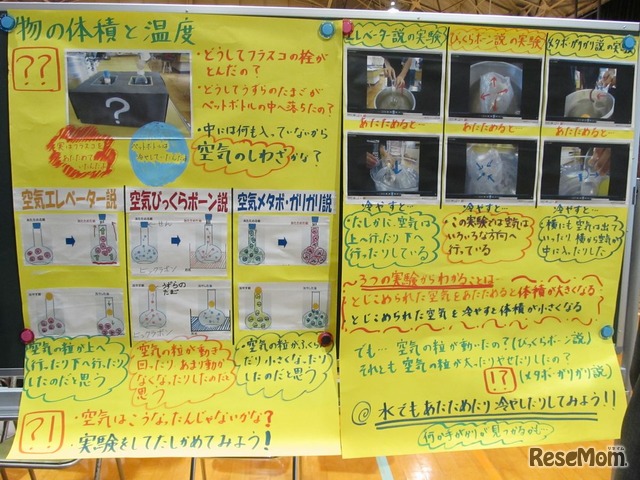 物の体積と温度
??
・どうしてフラスコの栓が
とんだの?
・どうしてうずらのたまごが
ペットボトルの中へ落ちたの?
・中には何も入っていないから
空気のしわざかな?
?
実はフラスコを
あたためて
いたんだよ
ペットボトルは
冷やしていたんだよ
空気エレベーター説
空気びっくらボーン説
空気メタボ・ガリガリ説
空気の粒が上へ
行ったり下へ行ったり
したのだと思う
空気の粒が動き
回ったり あまり動か
なくなったりしたのだと
思う
空気の粒がふくら
んだり小さくなったり
したのだと思う
?!
・空気はこうなったんじゃないかな?
・実験をしてたしかめてみよう!
エレベーター説の実験
びっくらボーン説の実験
メタボ・ガリガリ説の実験
あたためると…
あたためると…
あたためると…
冷やすと…
冷やすと…
冷やすと…
たしかに、空気は
上へ行ったり下へ
行ったりしている
・この実験では空気は
いろいろな方向へ
行っている
・横にも空気は出て
いったり 横から空気が
中に入ったりした
3つの実験からわかることは…
とじこめられた空気をあたためると体積が大きくなる
とじこめられた空気を冷やすと体積が小さくなる
でも… 空気の粒が動いたの?(びっくらボーン説)
それとも空気の粒が太ったりやせたりしたの?
(メタボ・ガリガリ説)
!?
@ 水でもあたためたり冷やしたりしてみよう!!
何か手がかりが見つかるかも…
ReseMom.